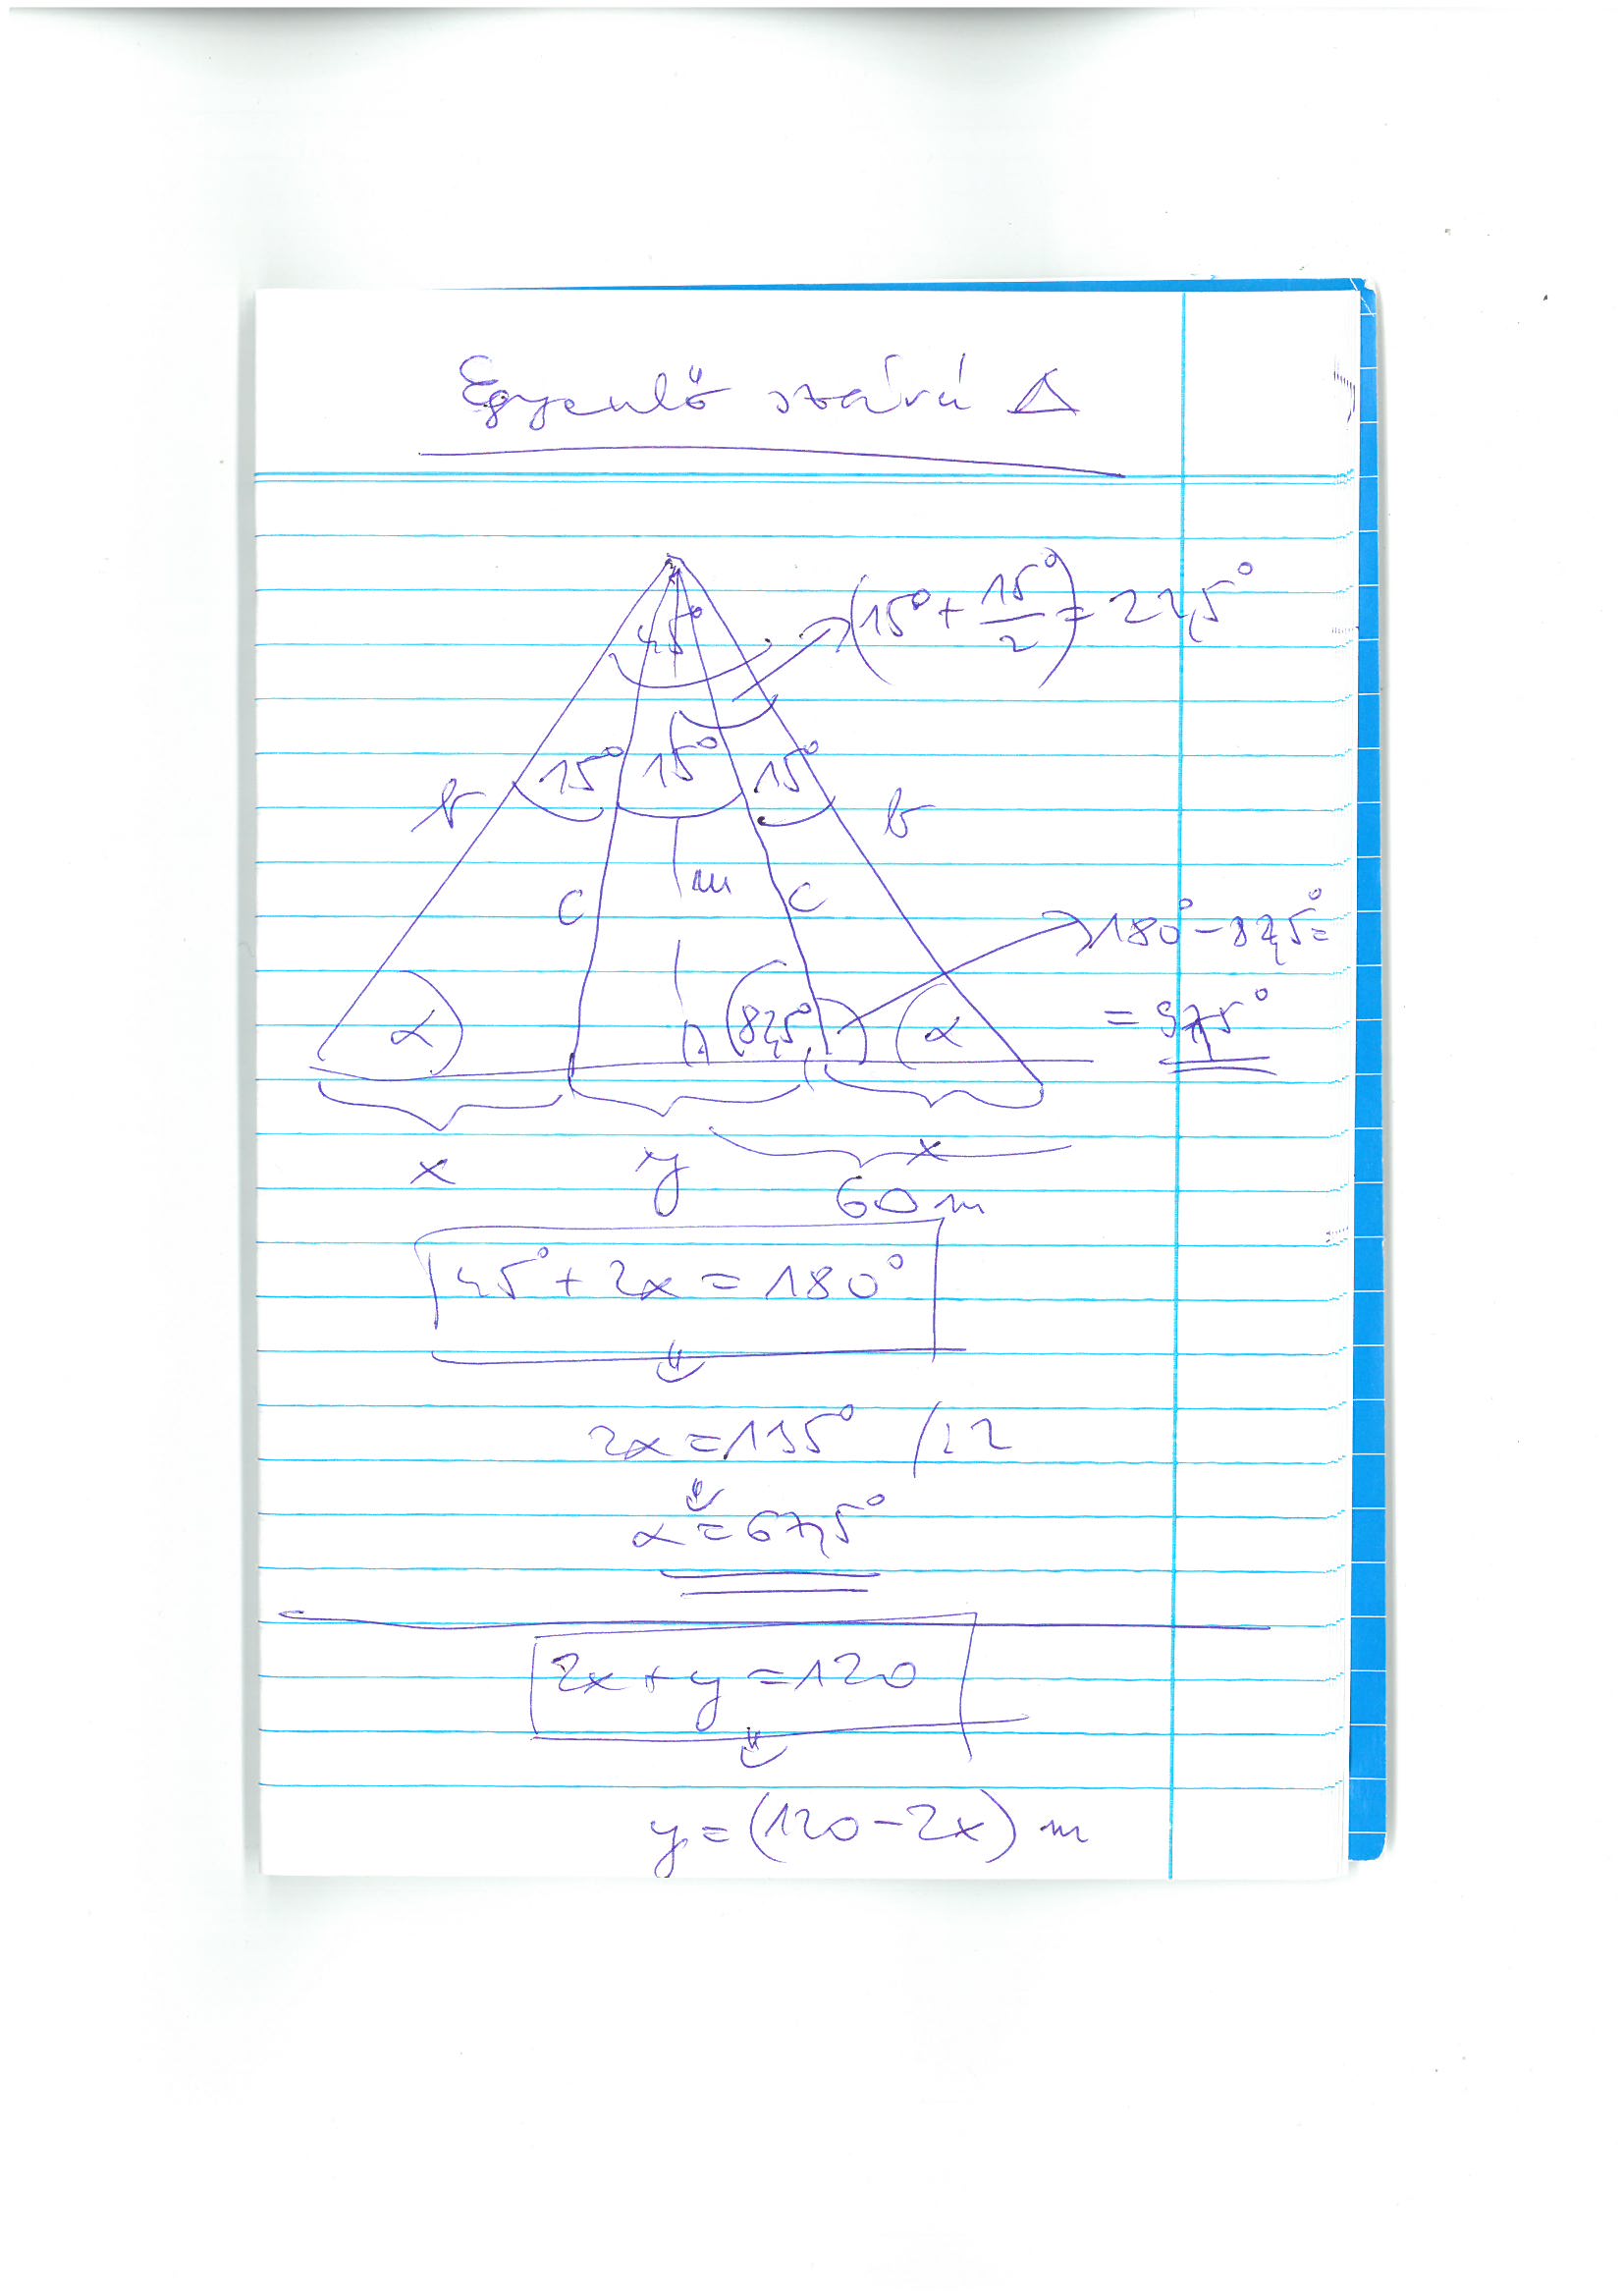 Egyenlő szárú Δ
45°
(15° + 15°/2) = 22,5°
15° 15° 15°
b b
m
c c
180° - 82,5° =
α 82,5° α
= 97,5°
x y x
60 m
45° + 2α = 180°
⇓
2α = 135° /:2
⇓
α = 67,5°
2x + y = 120
⇓
y = (120 - 2x) m